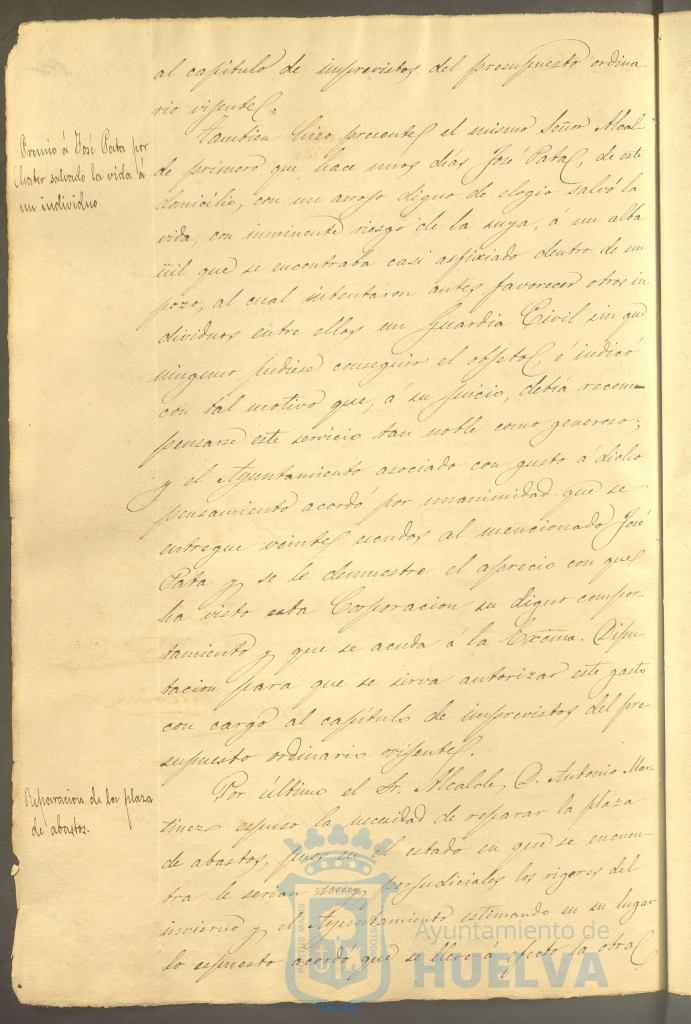 al capitulo de imprevistos del presupuesto ordina
rio vigente.
Premio á José Pata por
haber salvado la vida á
un individuo
Tambien hizo presente el mismo Señor Alcal-
de primero que hace unos dias José Pata, de este
domicilio, con un arrojo digno de elogio salvó la
vida, con inminente riesgo de la suya, á un alba
ñil que se encontraba casi asfixiado dentro de un
pozo, al cual intentaron antes favorecer otros in
dividuos entre ellos un Guardia Civil sin que
ninguno pudiese conseguir el objeto, é indicó
con tal motivo que, á su juicio, debía recom-
pensarse este servicio tan noble como generoso;
y el Ayuntamiento asociado con gusto á dicho
pensamiento acordó por unanimidad que se
entregue veinte escudos al mencionado José
Pata y se le demuestre el aprecio con que
ha visto esta Corporacion su digno compor-
tamiento y que se acuda á la Excma. Dipu
tacion para que se sirva autorizar este gasto
con cargo al capitulo de imprevistos del pre-
supuesto ordinario vigente.
Reparacion de la plaza
de abastos.
Por último el Sr. Alcalde D. Antonio Mar-
tinez espuso la necesidad de reparar la plaza
de abastos, pues en el estado en que se encuen-
tra le serian muy perjudiciales los rigores del
invierno y el Ayuntamiento estimando en su lugar
lo espuesto acordó que se lleve á efecto la obra
Ayuntamiento de
HUELVA